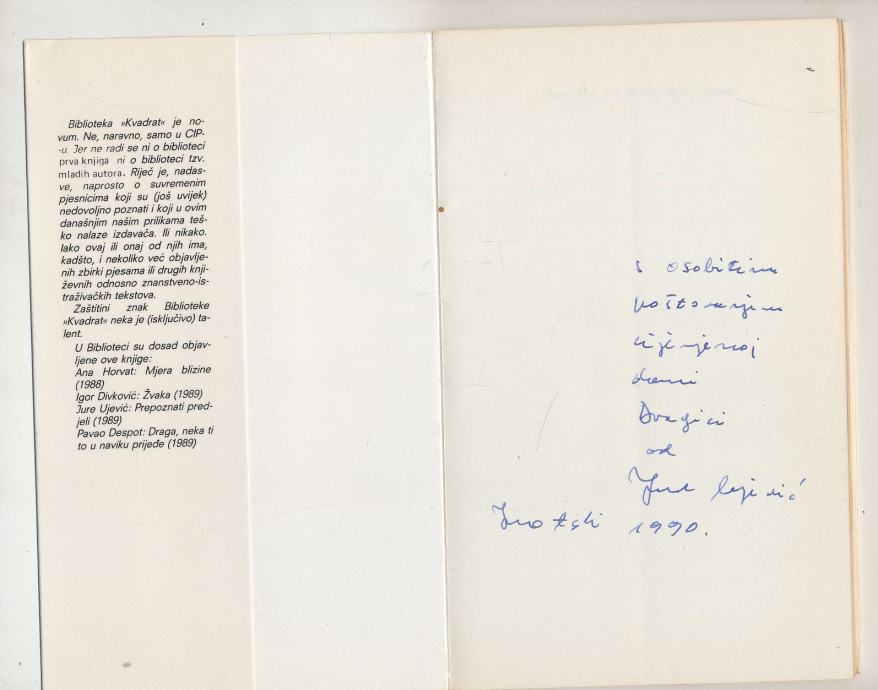 Biblioteka »Kvadrat« je no-
vum. Ne, naravno, samo u CIP-
-u. Jer ne radi se ni o biblioteci
prva knjiga ni o biblioteci tzv.
mladih autora. Riječ je, nadas-
ve, naprosto o suvremenim
pjesnicima koji su (još uvijek)
nedovoljno poznati i koji u ovim
današnjim našim prilikama teš-
ko nalaze izdavača. Ili nikako.
Iako ovaj ili onaj od njih ima,
kadšto, i nekoliko već objavlje-
nih zbirki pjesama ili drugih knji-
ževnih odnosno znanstveno-is-
traživačkih tekstova.
Zaštitini znak Biblioteke
»Kvadrat« neka je (isključivo) ta-
lent.
U Biblioteci su dosad objav-
ljene ove knjige:
Ana Horvat: Mjera blizine
(1988)
Igor Divković: Žvaka (1989)
Jure Ujević: Prepoznati pred-
jeli (1989)
Pavao Despot: Draga, neka ti
to u naviku prijeđe (1989)
s osobitim
poštovanjem
cijenjenoj
dami
Dragici
od
Jure Ujević
Imotski 1990.